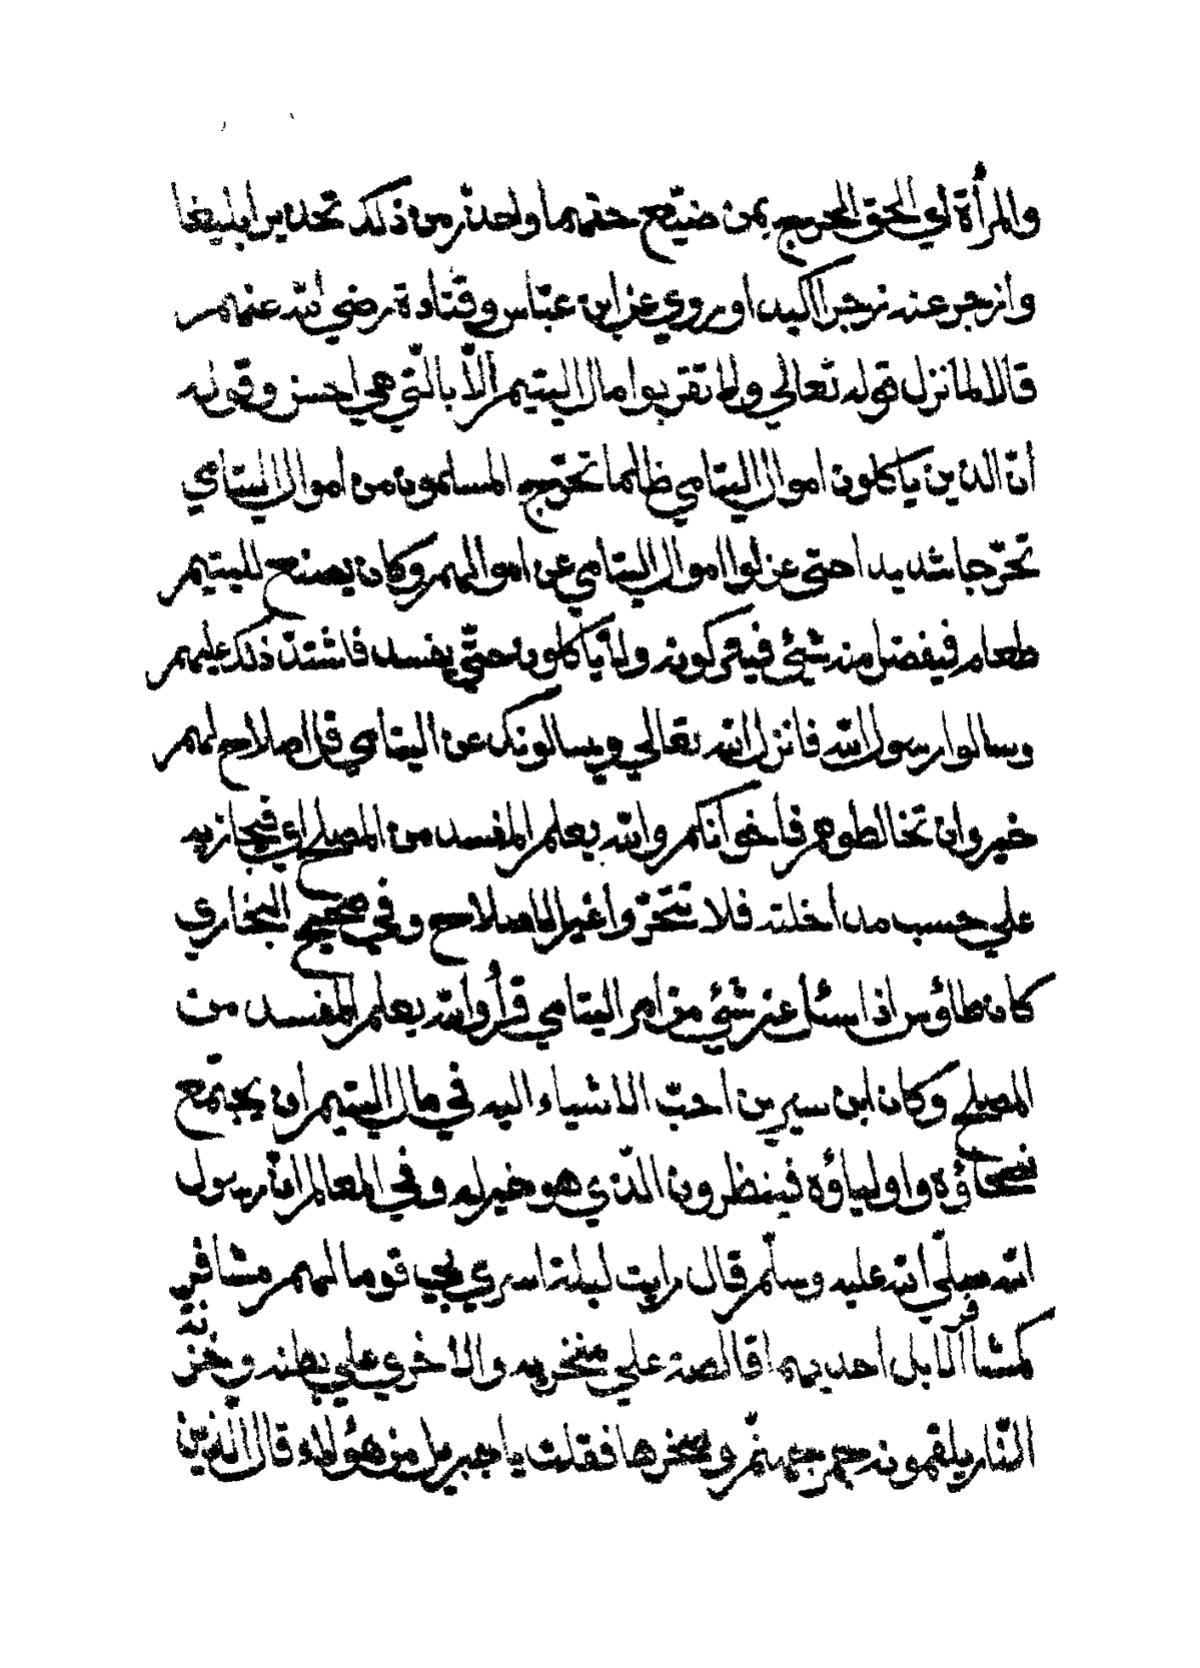 والمرأة أي الحق الحرج بمن ضيّع حقهما واحذّر من ذلك تحذيرا بليغا
وازجر عنه زجرا اكيدا وروي عن ابن عبّاس وقتادة رضي الله عنهم
قالا لما نزل قوله تعالي ولا تقربوا مال اليتيم الّا بالّتي هي احسن وقوله
انّ الذين ياكلون اموال اليتامي ظلما تحرّج المسلمون من اموال اليتامي
تحرّجا شديدا حتي عزلوا اموال اليتامي عن اموالهم وكان يصنع لليتيم
طعام فيفضل منه شيئ فيتركونه ولا ياكلونه حتّي يفسد فاشتدّ ذلك عليهم
وسالوا رسول الله فانزل الله تعالي ويسالونك عن اليتامي قل اصلاح لهم
خير وان تخالطوهم فأخوانكم والله يعلم المفسد من المصلح اي فيجازيه
علي حسب مداخلته فلا تتحرّوا غير الاصلاح وفي صحيح البخاري
كان طاؤس اذا سئل عن شيئ من امر اليتامي قرأ والله يعلم المفسد من
المصلح وكان ابن سيرين احبّ الاشياء اليه في مال اليتيم ان يجتمع
نصحاؤه واولياؤه فينظرون الّذي هو خير له وفي المعالم انّ رسول
الله صلّي الله عليه وسلّم قال رايت ليلة اسري بي قوما لهم مشافر
كمشافر الابل احديهما قالصة علي منخريه والاخري علي بطنه وخزنة
النّار يلقمونه جمر جهنّم وصخرها فقلت يا جبريل من هؤلاء قال الّذين